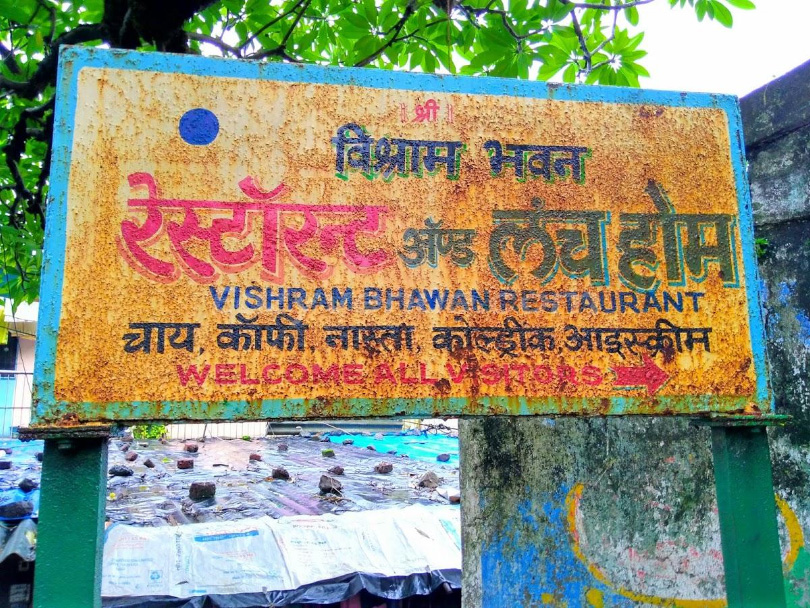 । श्री ।
विश्राम भवन
रेस्टॉरन्ट ॲण्ड लंच होम
VISHRAM BHAWAN RESTAURANT
चाय, कॉफी, नास्ता, कोल्ड्रींक, आइस्क्रीम
WELCOME ALL VISITORS